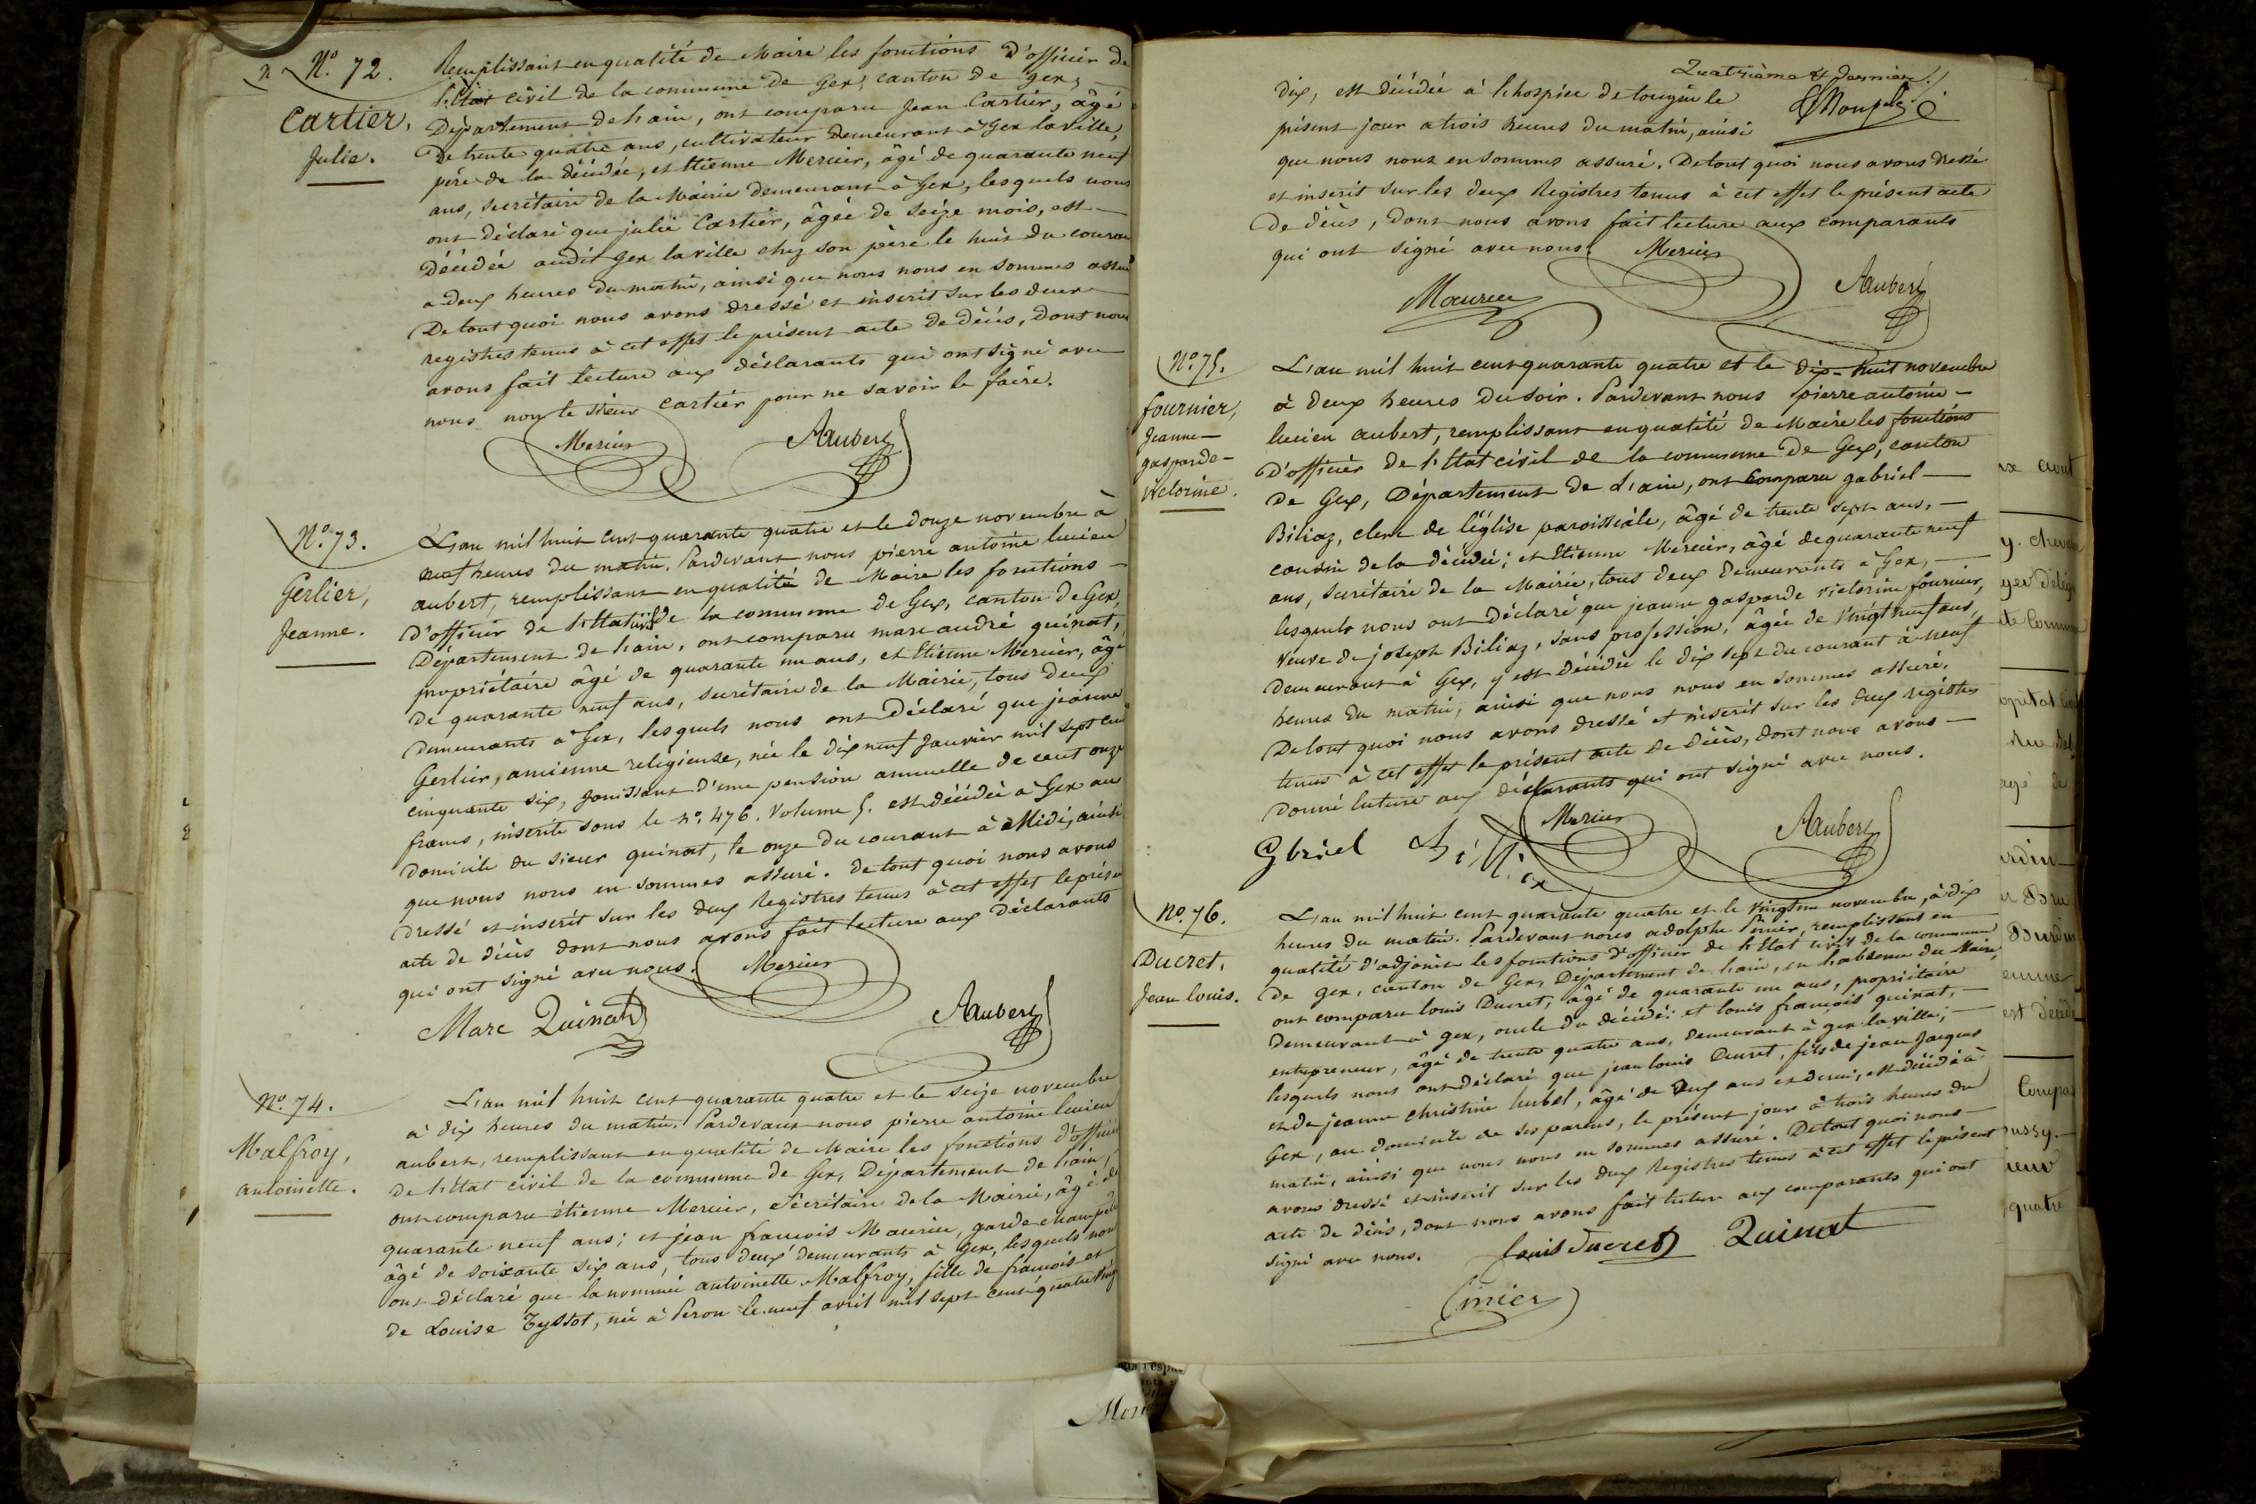 N.° 72.
Cartier,
Julie.
Remplissant en qualité de Maire les fonctions d'officier de
l'Etat civil de la commune de Gex, canton de gex,
Département de l'ain, ont comparu Jean Cartier, âgé
de trente quatre ans, cultivateur demeurant à Gex la ville,
père de la décédée, et Etienne Mercier, âgé de quarante neuf
ans, secrétaire de la Mairie demeurant à Gex, lesquels nous
ont déclaré que julie Cartier, âgée de seize mois, est
décédée audit Gex la ville chez son père le huit du couran
a deux heures du matin, ainsi que nous nous en sommes assuré
De tout quoi nous avons dressé et inscrit sur les deux
registres tenus à cet effet le présent acte de décès, dont nous
avons fait lecture aux déclarants qui ont signé avec
nous non le sieur cartier pour ne savoir le faire.
Mercier Aubert
N.° 73.
Gerlier,
Jeanne.
L'an mil huit cent quarante quatre et le douze novembre à
neuf heures du matin. Pardevant nous pierre antoine lucien
aubert, remplissant en qualité de Maire les fonctions
d'officier de l'Etat civil de la commune de Gex, canton de Gex,
Département de l'ain, ont comparu marc andré quinat,
propriétaire âgé de quarante un ans, et Etienne Mercier, âgé
de quarante neuf ans, secrétaire de la Mairie, tous deux
demeurants à Gex, lesquels nous ont déclaré que jeanne
Gerlier, ancienne religieuse, née le dix neuf Janvier mil sept cent
cinquante six, jouissant d'une pension annuelle de cent onze
francs, inscrite sous le n.° 476. Volume 5. est décédée à Gex au
domicile du sieur quinat, le onze du courant à Midi, ainsi
que nous nous en sommes assuré. de tout quoi nous avons
dressé et inscrit sur les deux Registres tenus à cet effet le prése
acte de décès dont nous avons fait lecture aux Déclarants
qui ont signé avec nous. Mercier
Marc Quinat Aubert
N.° 74.
Malfroy,
antoinette.
L'an mil huit cent quarante quatre et le seize novembre
à dix heures du matin. Pardevant nous pierre antoine lucien
aubert, remplissant en qualité de Maire les fonctions d'officier
de l'Etat civil de la commune de Gex, Département de l'ain,
ont comparu étienne Mercier, Sécrétaire de la Mairie, âgé de
quarante neuf ans; et jean françois Maurier, garde champêtre
âgé de soixante six ans, tous deux demeurants à Gex, lesquels nous
ont déclaré que la nommée antoinette Malfroy, fille de françois et
de Louise Tyssot, née à Peron le neuf avril mil sept cent quatre vingt
Quatrième & dernier
dix, est décédée à l'hospice de tougin le
présent jour a trois heures du matin, ainsi
que nous nous en sommes assuré. De tout quoi nous avons dressé
et inscrit sur les deux Registres tenus à cet effet le présent acte
de décès, dont nous avons fait lecture aux comparants
qui ont signé avec nous. Mercier
Maurier Aubert
N.° 75.
fournier,
Jeanne
gasparde
victorine.
L'an mil huit cent quarante quatre et le dix-huit novembre
à deux heures du soir. Pardevant nous pierre antoine
lucien aubert, remplissant en qualité de Maire les fonctions
d'officier de l'Etat civil de la commune de Gex, canton
de Gex, Département de L'ain, ont comparu gabriel
Biliaz, clerc de l'église paroissiale, âgé de trente sept ans,
cousin de la décédée; et Etienne Mercier, âgé de quarante neuf
ans, secrétaire de la Mairie, tous deux demeurants à Gex,
lesquels nous ont déclaré que jeanne gasparde victorine fournier,
veuve de joseph Biliaz, sans profession, âgée de vingt neuf ans,
demeurant à Gex, y est décédée le dix sept du courant à neuf
heures du matin, ainsi que nous nous en sommes assuré.
De tout quoi nous avons dressé et inscrit sur les deux registres
tenus à cet effet le présent acte de décès, dont nous avons
donné lecture aux déclarants qui ont signé avec nous.
Mercier Aubert
Gbriel
N.° 76.
Ducret,
Jean louis.
L'an mil huit cent quarante quatre et le vingt un novembre, à dix
heures du matin. Pardevant nous adolphe Pinier, remplissant en
qualité d'adjoint les fonctions d'officier de l'Etat civil de la commune
de gex, canton de Gex, Département de l'ain, en l'absence du Maire,
ont comparu louis Ducret, âgé de quarante un ans, propriétaire
demeurant à gex, oncle du décédé: et louis françois quinat,
entrepreneur, âgé de trente quatre ans, demeurant à gex la ville;
lesquels nous ont déclaré que jean louis Ducret, fils de jean Jacques
et de jeanne christine hubel, âgé de deux ans et demi, est décédé à
Gex, au domicile de ses parens, le présent jour à trois heures du
matin, ainsi que nous nous en sommes assuré. De tout quoi nous
avons dressé et inscrit sur les deux Registres tenus à cet effet le présent
acte de décès, dont nous avons fait lecture aux comparants qui ont
signé avec nous. Louis Ducret Quinat
Pinier